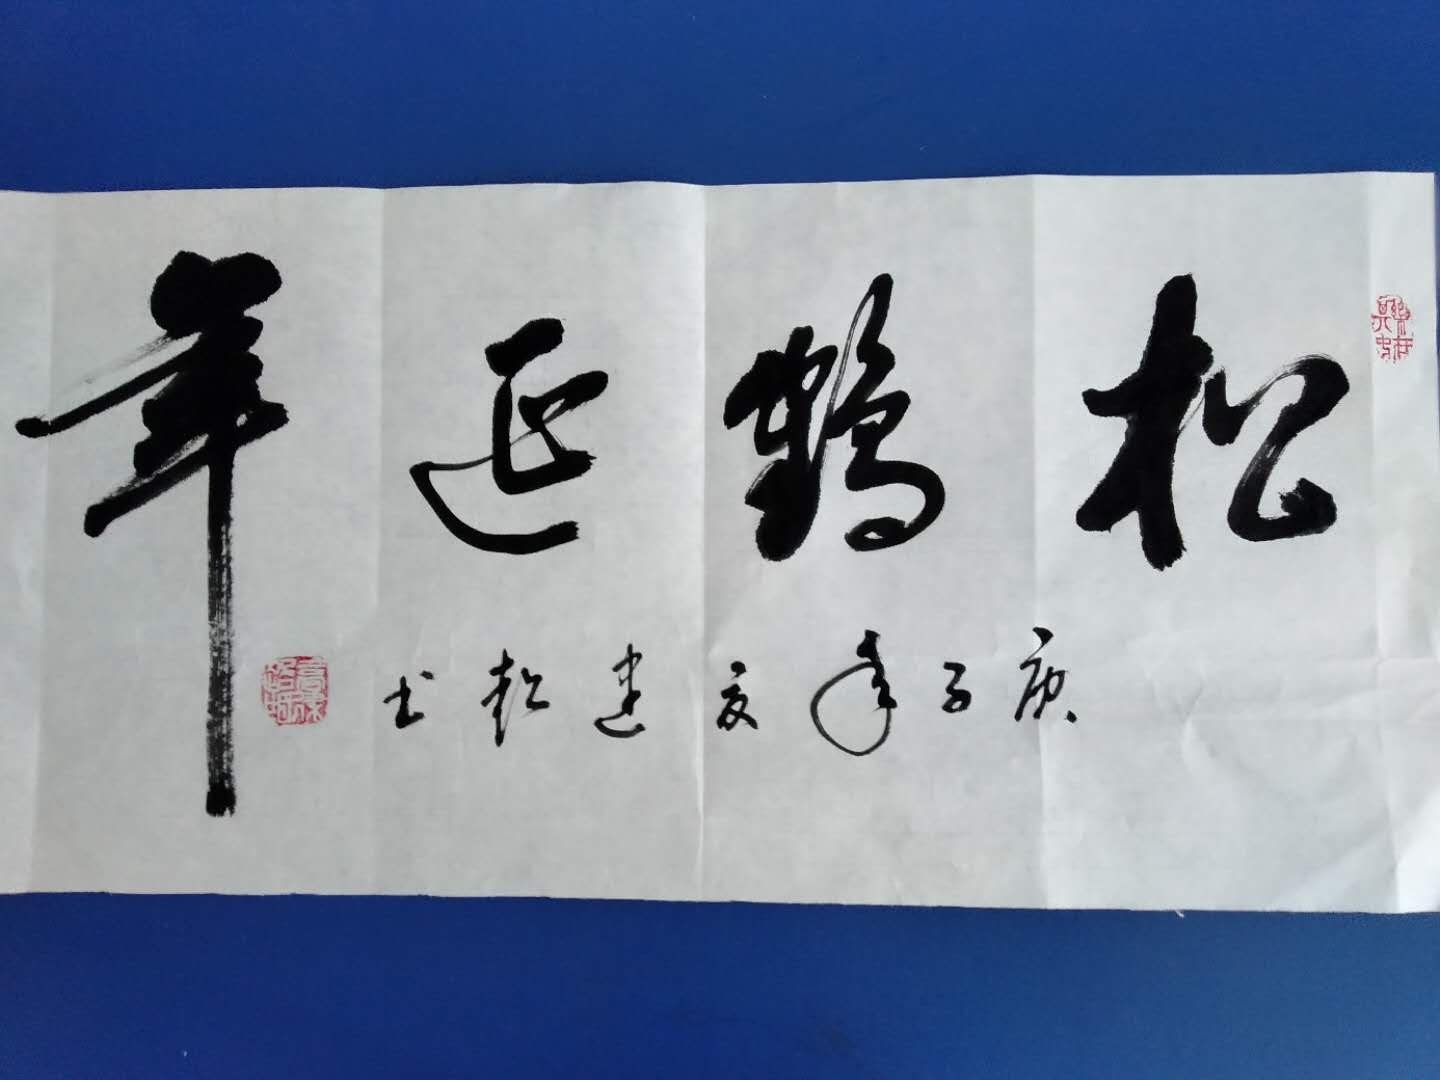 松鹤延年
庚子年夏建松书